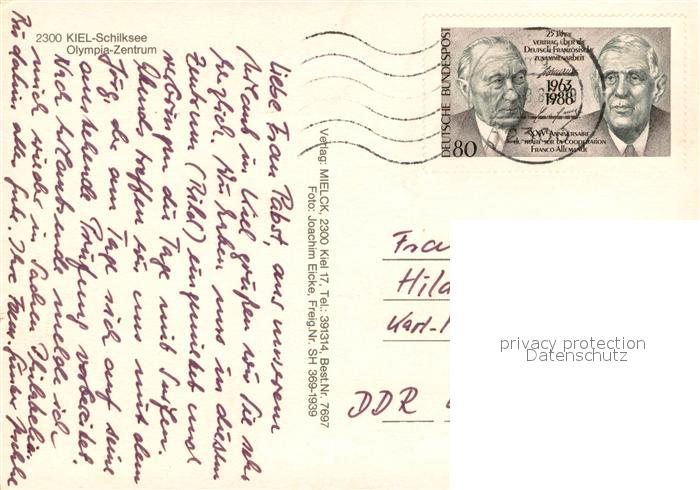 2300 KIEL-Schilksee
Olympia-Zentrum
Liebe Frau Pabst, aus unserem
Urlaub in Kiel grüßen wir Sie sehr
herzlich. Wir haben uns in diesem
Zentrum (Bild) einquartiert und
verbringen die Tage mit Surfen.
Abends treffen wir uns mit dem
Jörg, der am Tage sich auf seine
anstehende Prüfung vorbereitet.
Nach Urlaubsende melde ich
mich wieder in Sachen Philatelie.
Bis dahin alles Gute. Ihre Fam.
Verlag: MIELCK, 2300 Kiel 17, Tel.: 391314, Best.Nr. 7697
Foto: Joachim Eicke, Freig.Nr. SH 369-1939
DEUTSCHE BUNDESPOST
80
25 Jahre
Vertrag über die
Deutsch-Französische
Zusammenarbeit
1963
1988
XXVe Anniversaire
du Traité sur la Coopération
Franco-Allemande
Fra
Hild
Karl-
DDR
privacy protection
Datenschutz